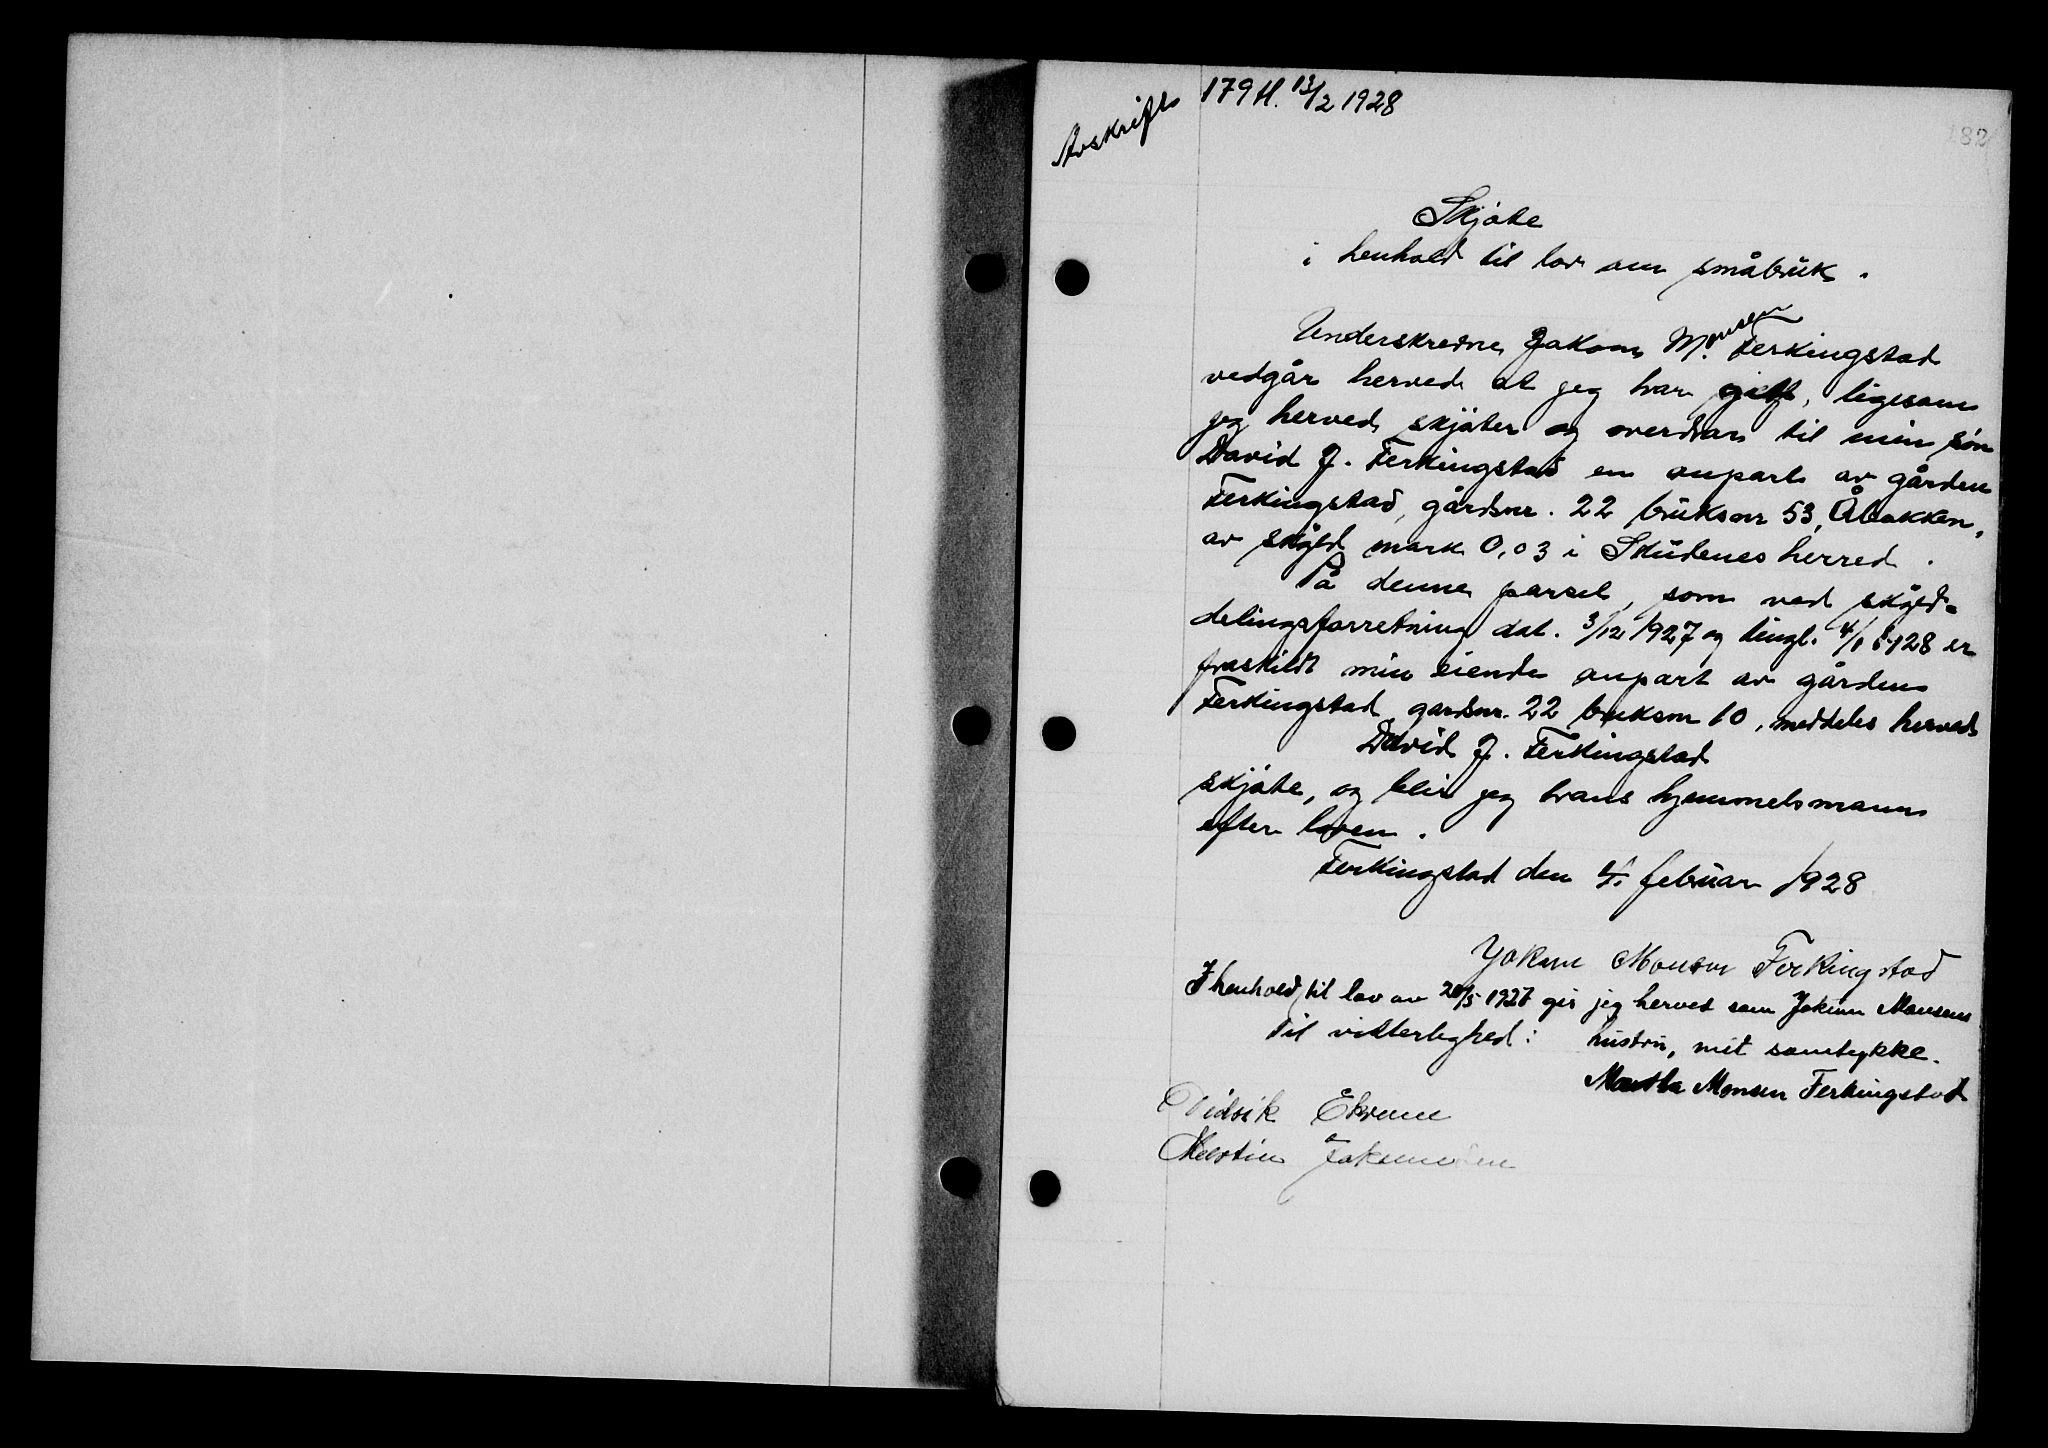 Avskrift 179 H. 13/2 1928
182
Skjöte
i henhold til lov om småbruk.
Underskrevne Jakom Monsen Ferkingstad
vedgår herved at jeg har gitt, ligesom
jeg herved skjöter og overdrar til min sön
David J. Ferkingstad en anpart av gården
Ferkingstad, gårdsnr. 22 bruksnr 53, Åbakken,
av skyld mark 0,03 i Skudenes herred.
På denne parsel, som ved skyld=
delingsforretning dat. 3/12 1927 og tingl. 4/1 1928 er
fraskildt min eiende anpart av gården
Ferkingstad gardsnr. 22 bruksnr 10, meddeles herved
David J. Ferkingstad
skjöte, og blir jeg hans hjemmelsmann
efter loven.
Ferkingstad den 4. februar 1928
Jokum Monsen Ferkingstad
I henhold til lov av 20/5 1927 gir jeg herved som Jokum Monsens
Til vitterlighed: hustru, mit samtykke.
Martha Monsen Ferkingstad
Didrik
Martin Jakomesen